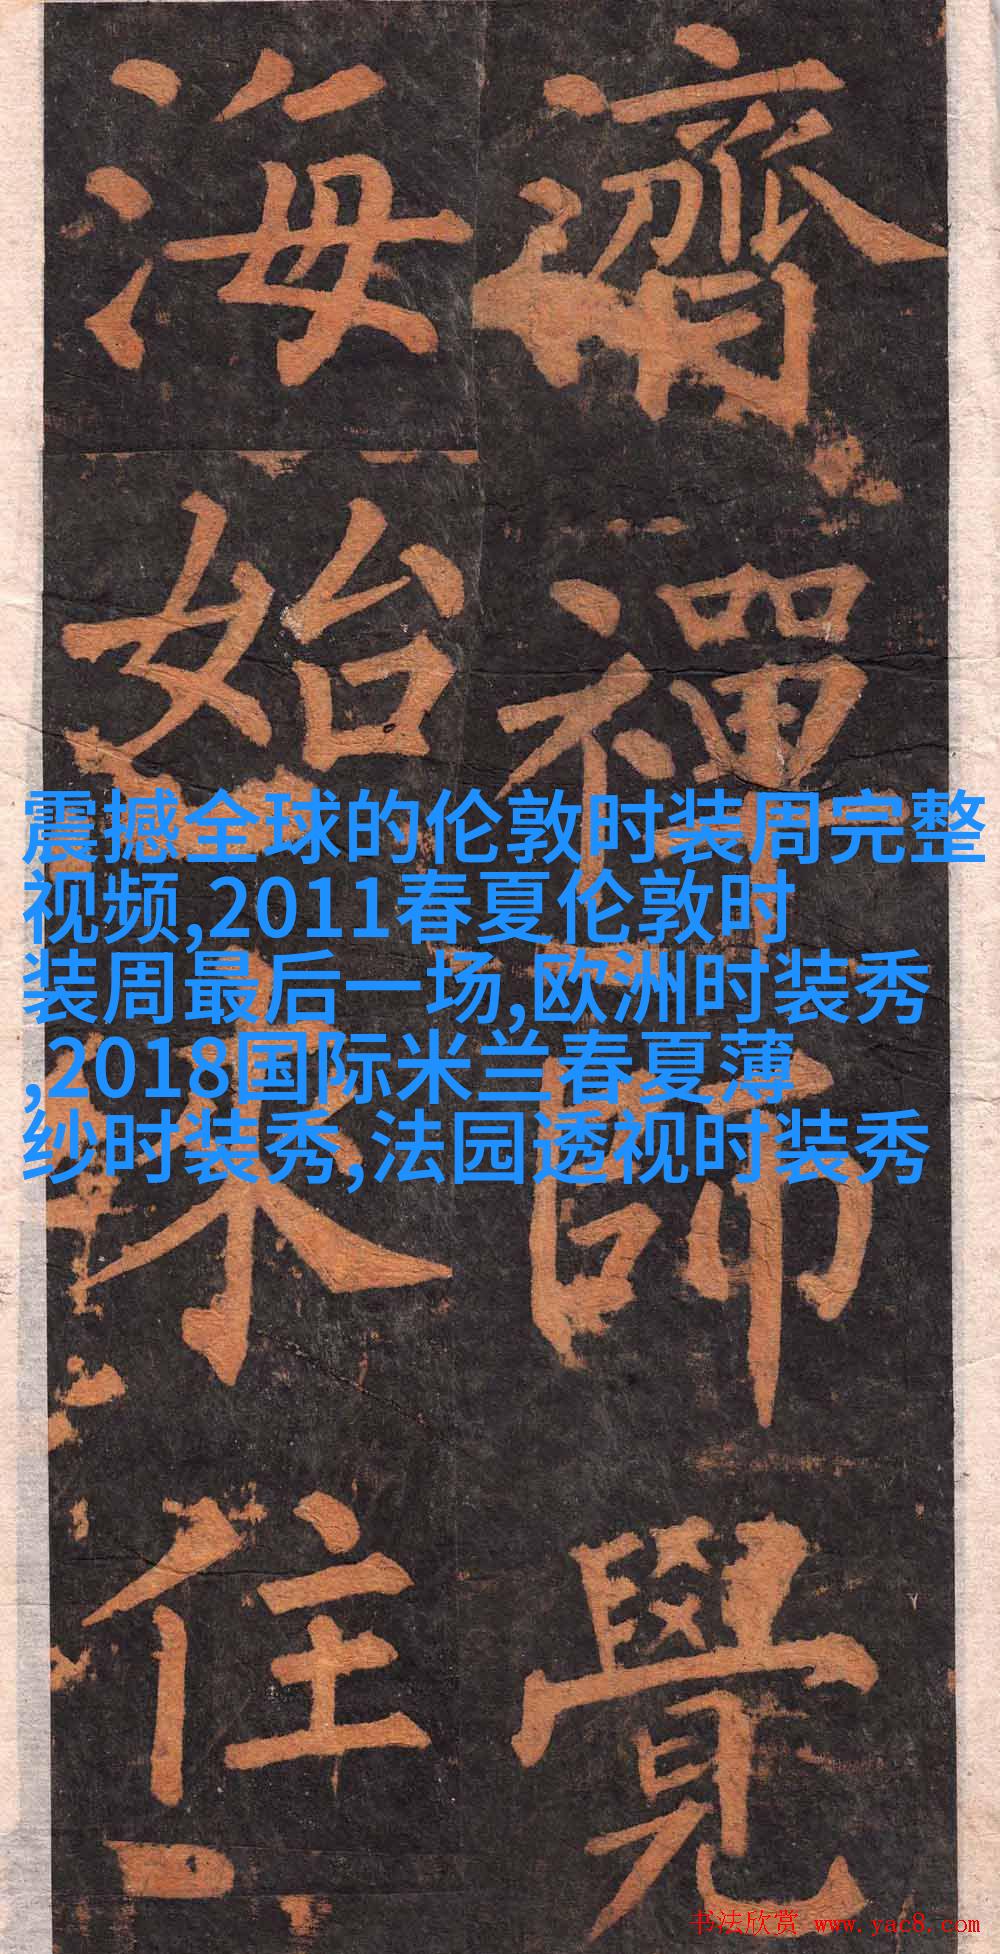 濟禪師覺
海始住
震撼全球的伦敦时装周完整
视频,2011春夏伦敦时
装周最后一场,欧洲时装秀
,2018国际米兰春夏薄
纱时装秀,法园透视时装秀
书法欣赏 www.yac8.com